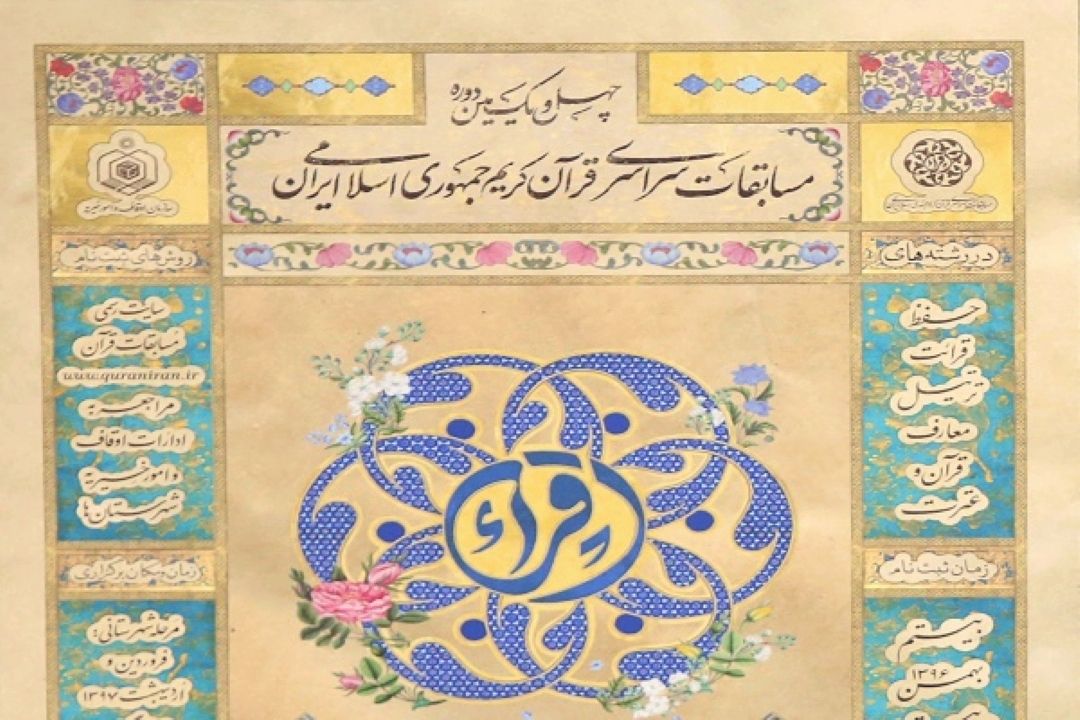 چهل و یکمین دوره
مسابقات سراسری قرآن کریم جمهوری اسلامی ایران
سازمان اوقاف و امور خیریه
در رشته های
حفظ
قرائت
ترتیل
معارف
قرآن و
عترت
زمان ثبت نام
بیستم
بهمن ۱۳۹۶
روش های ثبت نام
سایت رسمی
مسابقات قرآن
www.quraniran.ir
مراجعه به
ادارات اوقاف
و امور خیریه
شهرستان ها
زمان و مکان برگزاری
مرحله شهرستانی:
فروردین و
اردیبهشت ۱۳۹۷
اِقرَأ